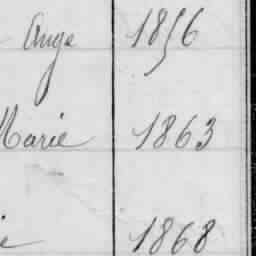 Ange 1856
Marie 1863
1868